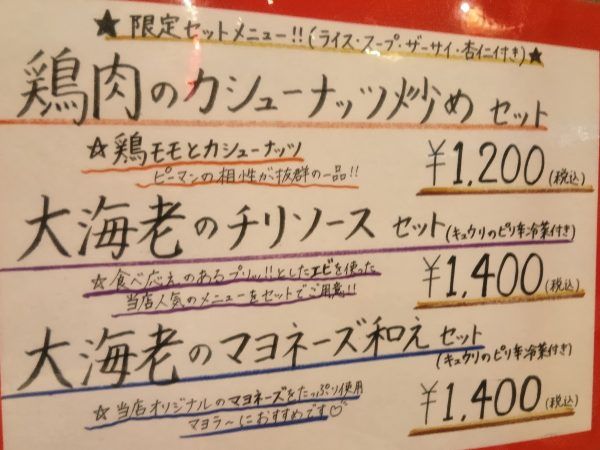 ★限定セットメニュー!!(ライス・スープ・ザーサイ・杏仁付き)★
鶏肉のカシューナッツ炒め セット
☆鶏モモとカシューナッツ
ピーマンの相性が抜群の一品!!
¥1,200(税込)
大海老のチリソース セット(キュウリのピリ辛冷菜付き)
☆食べ応えのあるプリッ!!としたエビを使った
当店人気のメニューをセットでご用意!!
¥1,400(税込)
大海老のマヨネーズ和え セット
(キュウリのピリ辛冷菜付き)
☆当店オリジナルのマヨネーズをたっぷり使用
マヨラ〜におすすめです♡
¥1,400(税込)